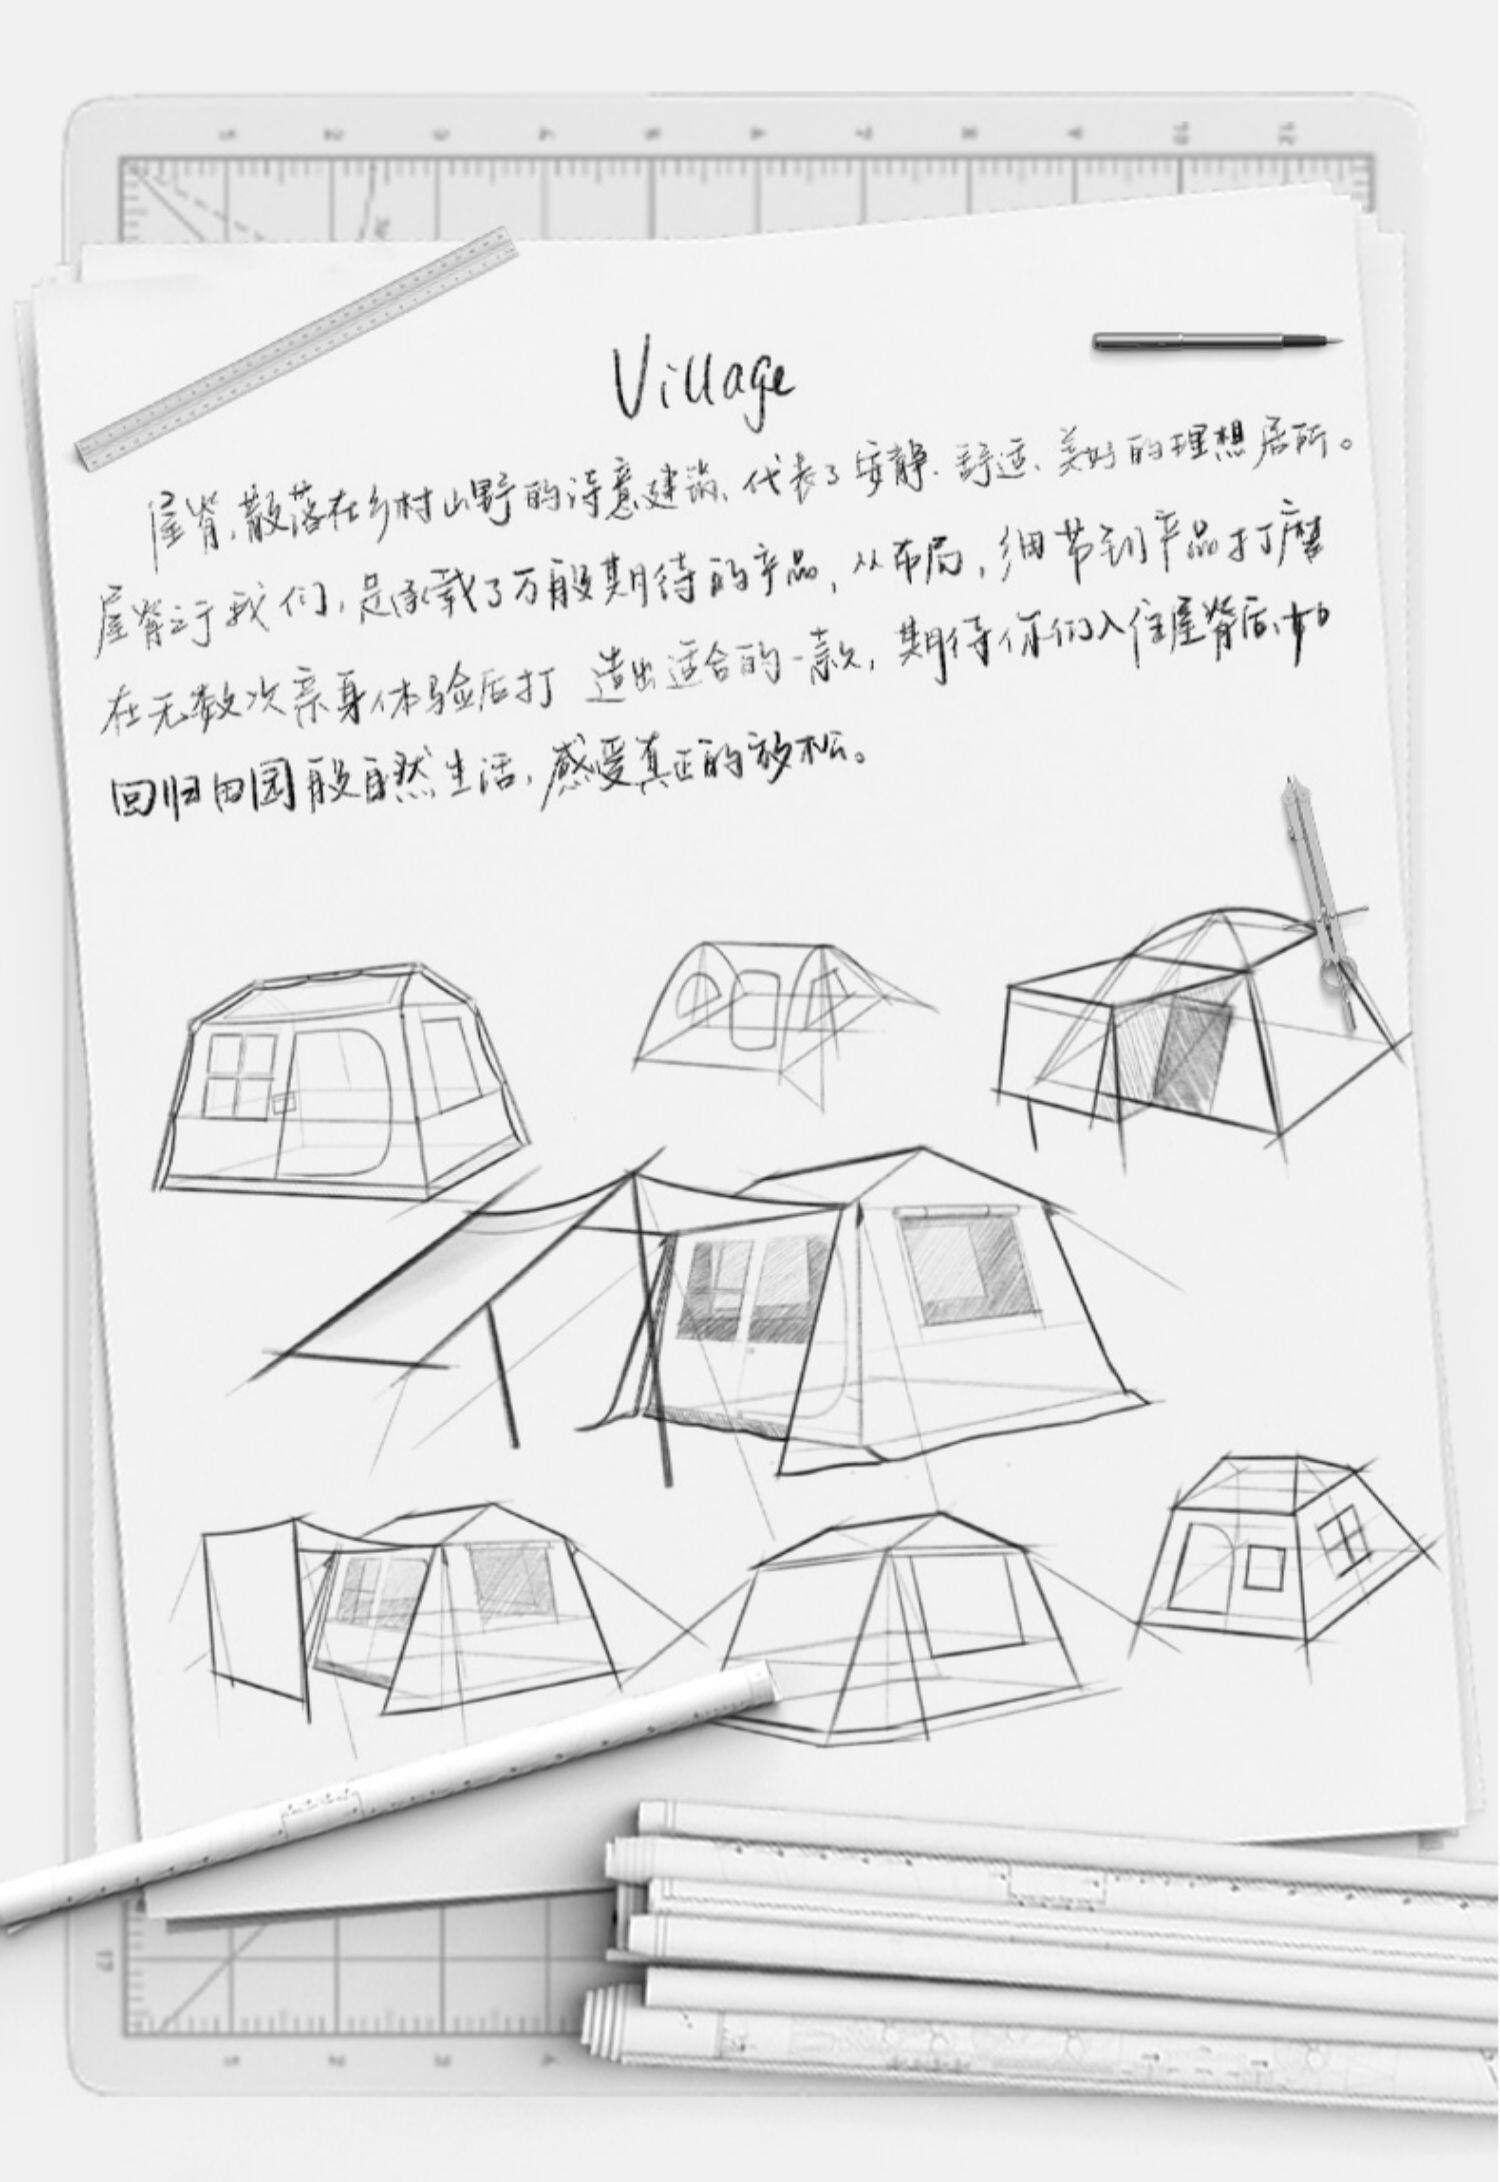 Village
屋脊,散落在乡村山野的诗意建筑、代表了安静、舒适、美好的理想居所。
屋脊于我们,是承载了万般期待的产品,从布局,细节到产品打磨
在无数次亲身体验后打 造出适合的一款,期待你们入住屋脊后,如
回归田园般自然生活,感受真正的放松。